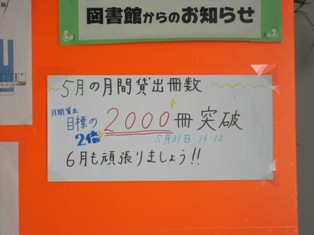 図書館からのお知らせ
5月の月間貸出冊数
月間貸出
目標の 2000冊 突破
2倍
5月31日 16:12
6月も頑張りましょう!!